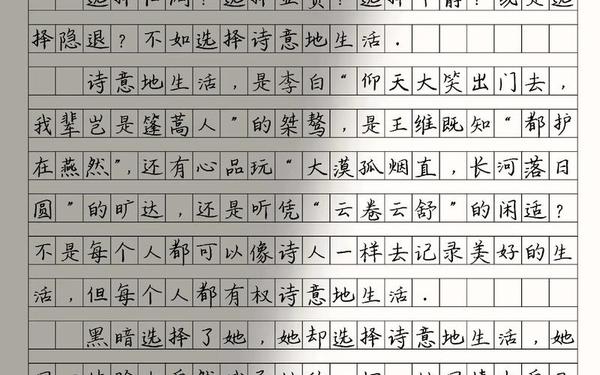 择隐退?不如选择诗意地生活.
诗意地生活,是李白“仰天大笑出门去,
我辈岂是篷蒿人”的桀骜,是王维既知“都护
在燕然”,还有心品玩“大漠孤烟直,长河落日
圆”的旷达,还是听凭“云卷云舒”的闲适?
不是每个人都可以像诗人一样去记录美好的生
活,但每个人都有权诗意地生活.
黑暗选择了她,她却选择诗意地生活,她